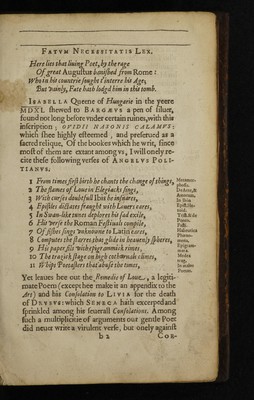 FATVM NECESSITATIS LEX.
Here lies that living Poet, by the rage
Of great Augustus banished from Rome:
Who in his countrie sought t'interre his Age,
But vainly, Fate hath lodg'd him in this tomb.
ISABELLA Queene of Hungarie in the yeere
MDXL shewed to BARGÆVS a pen of siluer,
found not long before vnder certain ruines, with this
inscription; OVIDII NASONIS CALAMVS:
which shee highly esteemed, and preserued as a
sacred relique. Of the bookes which he writ, since
most of them are extant among vs, I will onely re-
cite these following verses of ANGELVS POLI-
TIANVS.
1 From times first birth he chants the change of things,
2 The flames of Loue in Elegiacks sings,
3 With curses doubtfull Ibis he insnares,
4 Epistles dictates fraught with Louers cares,
5 In Swan-like tunes deplores his sad exile,
6 His verse the Roman Festiuals compile,
7 Of fishes sings vnknowne to Latin eares,
8 Computes the starres that glide in heauenly spheares,
9 His paper fils with epigrammick rimes,
10 The tragick stage on high cothurnals climes,
11 Whips Poetasters that abuse the times,
Metamor-
phosis.
De Arte, &
Amorum.
In Ibin
Epistolæ.
De
Tristibus &
Ponto.
Fasti.
Halieutica
Phæno-
mena.
Epigram-
mata
Medea
trag.
In malos
Poetas.
Yet leaues hee out the Remedie of Loue, a legiti-
mate Poem (except hee make it an appendix to the
Art) and his Consolation to LIVIA for the death
of DRVSVS: which SENECA hath excerped and
sprinkled among his seuerall Consolations. Among
such a multiplicitie of arguments our gentle Poet
did neuer write a virulent verse, but onely against
b 2 COR-